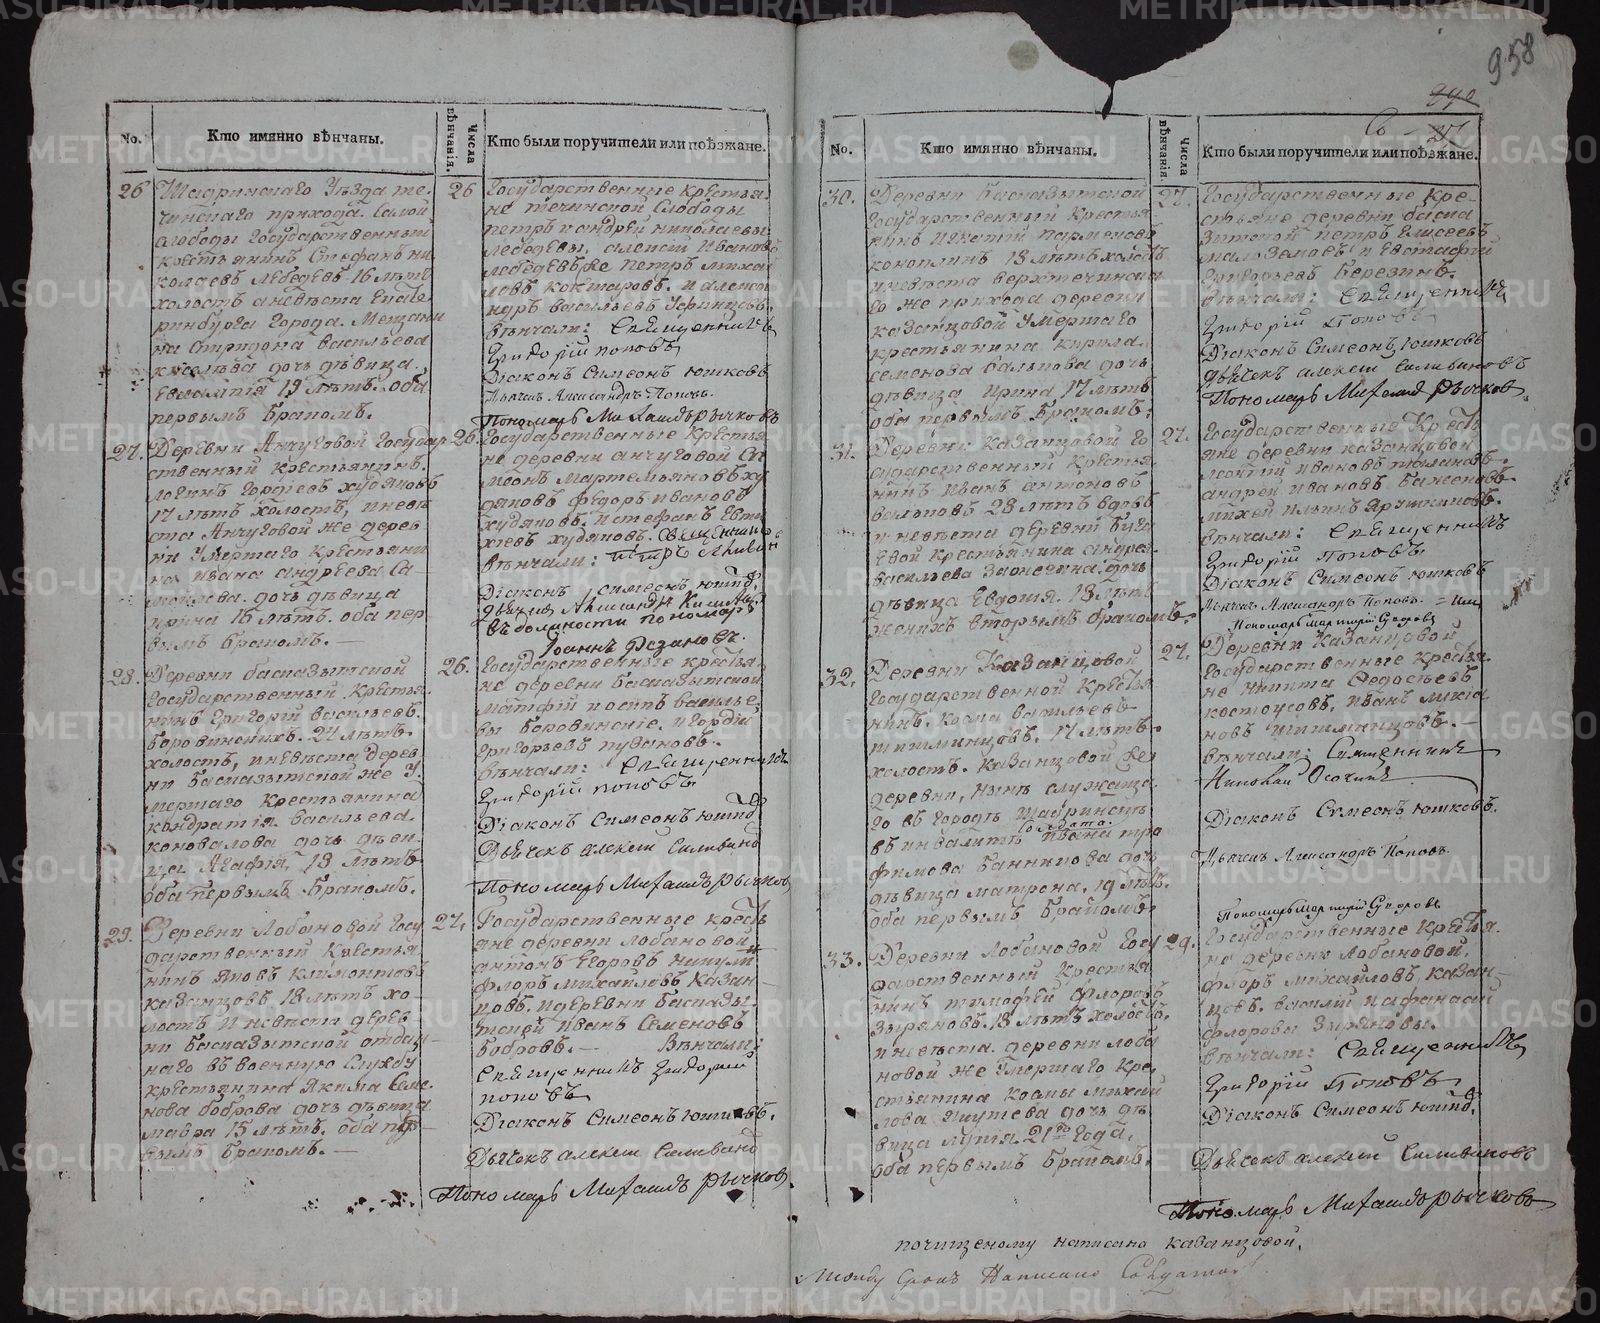 958
940
No.
Кто имянно вѣнчаны.
Числа вѣнчанія.
Кто были поручители или поѣзжане.
26
Шадринскаго Уѣзда те-
чинскаго прихода. Самой
слободы Государственный
крестьянинъ Стефанъ ни
колаевъ Лебедевъ 16 лѣтъ
холостъ а невѣста Екате
ринбурга города. Мещани
на Спиридона васильева
дочь дѣвица
Евгенпія 19 лѣтъ. оба
первымъ бракомъ.
26
Государственные крестья
не течинской Слободы
петръ и андрей николаевы
лебедевы, алексей Иванов
лебедевъ же петръ михай
ловъ кокшаровъ. и алекса
ндръ васильевъ
вѣнчали: Священникъ
Григорій поповъ
Діаконъ Симеонъ Юшковъ
Дьячекъ Александръ Поповъ.
Пономарь Михаилъ рычковъ
27.
Деревни Анчуговой Государ
ственный крестьянинъ.
логинъ Гордѣевъ худяковъ
17 лѣтъ холостъ, и невѣ
ста Анчуговой же дерев-
ни Умершаго крестьяни
на ивана андреева Са-
дочь дѣвица
ирина 16 лѣтъ. оба пер
вымъ бракомъ. —
26.
Государственные крестья
не деревни анчуговой Си
меонъ мартемьяновъ ху
дяковъ федоръ ивановъ
худяковъ. и стефанъ Евти
хіевъ худяковъ. Священникъ
вѣнчали: петръ
Діаконъ симеонъ юшко
дьячекъ
въ должности пономаря
Іоаннъ Рєзановъ.
28.
Деревни басказыкской
Государственный крестья
нинъ Григорій васильевъ.
боровинскихъ. 24 лѣтъ.
холостъ, и невѣста дерев
ни басказыкской же У
мершаго крестьянина
кондратія васильева
коновалова дочь дѣви
ца Агафія, 19 лѣтъ
оба первымъ бракомъ.
26.
Государственные крестья
не деревни басказыкской
матфій и осипъ василье
вы боровинскіе. и гордій
григорьевъ пудановъ.
вѣнчали: Священникъ
Григорій поповъ
Діаконъ Симеонъ юшко
Дьячекъ алексѣи Силивано
Пономарь Михаилъ рычков
29.
Деревни Лобановой Госу
дарственный крестья
нинъ Яковъ климонтовъ
казанцовъ 18 лѣтъ хо-
лостъ и невѣста дерев-
ни басказыкской отдан
наго въ военную службу
крестьянина Якима Семе
нова боброва дочь дѣвица
мавра 15 лѣтъ. оба пер-
вымъ бракомъ. —
27.
Государственные кресть
яне деревни лобановой
антонъ Егоровъ никули
флоръ михайловъ казан-
цовъ. и деревни басказы-
кской иванъ Семеновъ
бобровъ. — Вѣнчали:
Священникъ Григорій
поповъ
Діаконъ Симеонъ юшковъ.
Дьячекъ алексѣи Силивано
Пономарь Михаилъ рычков
No.
Кто имянно вѣнчаны.
Числа вѣнчанія.
Кто были поручители или поѣзжане.
30.
Деревни басказыкской
Государственный крестья
нинъ игнатій парменовъ
коноплинъ 18 лѣтъ холостъ
и невѣста верхтечинска
го же прихода деревни
казанцовой умершаго
крестьянина кирила
семенова вальцова дочь
дѣвица ирина 17 лѣтъ
оба первымъ бракомъ.
27.
Государственные кре-
стьяне деревни баска
зыкской петръ Елисеевъ
малоземовъ и Евстафій
Григорьевъ березинъ.
вѣнчали: Священникъ
Григорій поповъ
Діаконъ Симеонъ юшковъ
дьячекъ алексѣи силивановъ
Пономарь Михаилъ рычков
31.
Деревни казанцовой го
сударственный крестья
нинъ иванъ антоновъ
вальцовъ 28 лѣтъ вдовъ
и невѣста деревни буга
евой крестьянина андрея
васильева дочь
дѣвица Евдокія. 18 лѣтъ
женихъ вторымъ бракомъ.
27.
Государственные кресть
яне деревни казанцовой
ивановъ
андрей ивановъ баженовъ.
михей ильинъ
вѣнчали: Священникъ
Григорій поповъ
Діаконъ Симеонъ юшковъ
Дьячекъ Александръ Поповъ.
Пономарь
32.
Деревни Казанцовой
Государственной крестья
нинъ. козма васильевъ
тишминцовъ. 17 лѣтъ.
холостъ. казанцовой же
деревни, нынѣ служаща-
го въ городѣ Шадринскѣ
солдата.
въ инвалидѣ ивана тро
фимова банникова дочь
дѣвица матрона, 19 лѣтъ.
оба первымъ бракомъ.
27.
Деревни Казанцовой
Государственные крестья
не никита Федосѣевъ
костоусовъ, иванъ лукіа
новъ тишминцовъ. —
вѣнчали: Священникъ
Николай Осочинъ
Діаконъ Симеонъ юшковъ.
Дьячекъ Александръ Поповъ.
Пономарь
33.
Деревни Лобановой Госу
дарственный крестья
нинъ тимофей флоровъ
зыряновъ. 18 лѣтъ холостъ.
и невѣста. деревни лоба
новой же Умершаго кре-
стьянина козмы михай
лова дочь дѣ
вица лукія 21го года.
оба первымъ бракомъ.
29.
Государственные крестья-
не деревни лобановой.
флоръ михайловъ казан-
цовъ. василій и афанасій
флоровы зыряновы.
вѣнчали: Священникъ
Григорій Поповъ
Діаконъ Симеонъ юшко
Дьячекъ алексѣй Силивановъ
Пономарь Михаилъ рычковъ
почищеному написано казанцовой.
между строкъ написано солдата